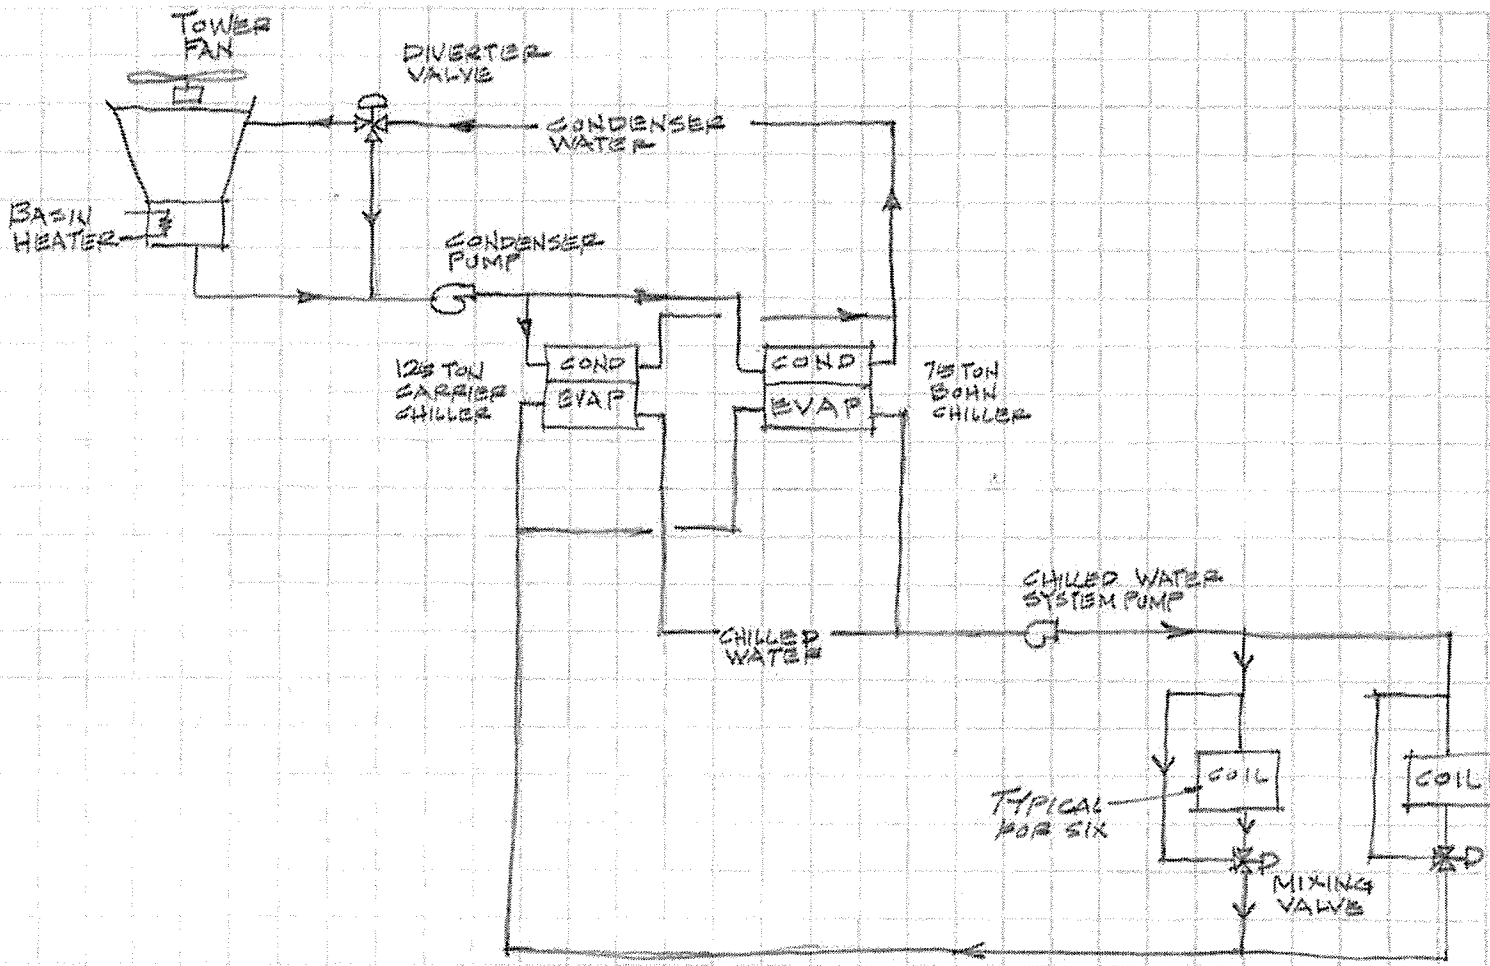 TOWER
FAN
DIVERTER
VALVE
CONDENSER
WATER
BASIN
HEATER
CONDENSER
PUMP
125 TON
CARRIER
CHILLER
COND
EVAP
COND
EVAP
75 TON
BOHN
CHILLER
CHILLED WATER
SYSTEM PUMP
CHILLED
WATER
COIL
COIL
TYPICAL
FOR SIX
MIXING
VALVE